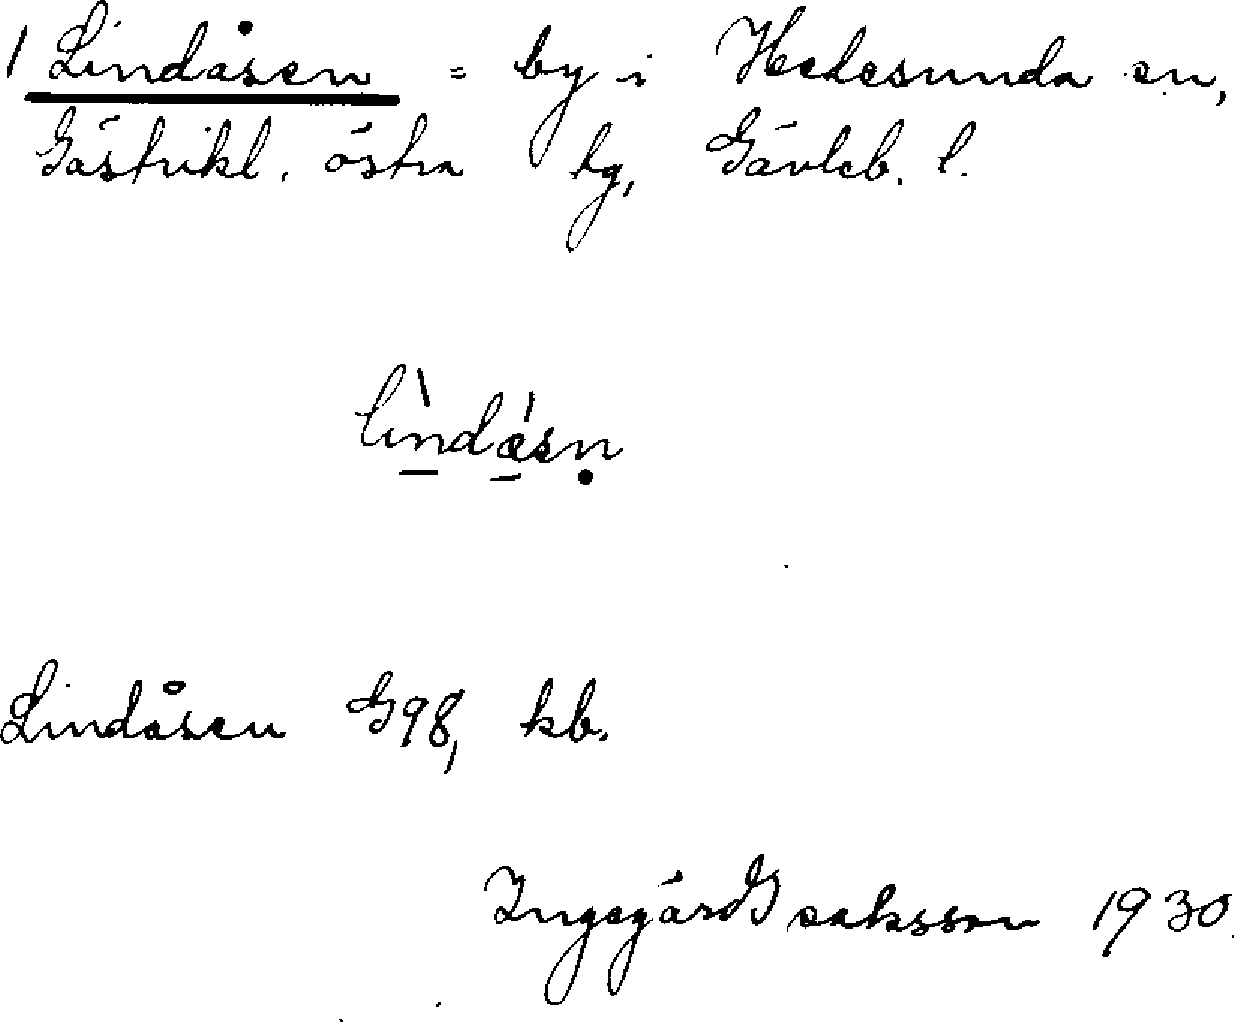 1 Lindåsen = by i Hedesunda sn,
Gästrikl. östra tg, Gävleb. l.
lìndåsṇ
Lindåsen G98, kb.
Ingegärd Isaksson 1930.